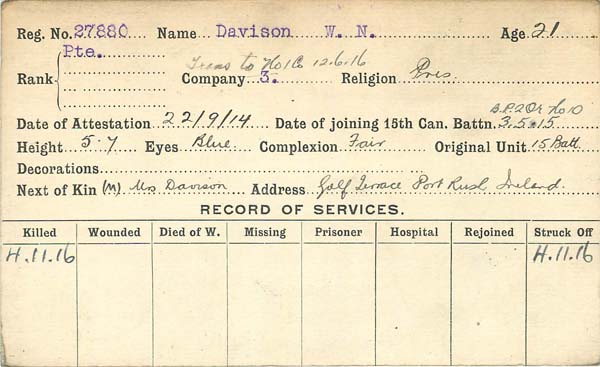 Reg. No. 27880 Name Davison W. N. Age 21
Pte.
Trans to No 1 Co 12.6.16
Rank Company 3. Religion Pres.
B.P.2 Or No 10
Date of Attestation 22/9/14 Date of joining 15th Can. Battn. 3.5.15
Height 5.7 Eyes Blue Complexion Fair Original Unit 15 Batt
Decorations
Next of Kin (M) Mrs Davison Address Golf Terrace Port Rush Ireland.
RECORD OF SERVICES.
Killed Wounded Died of W. Missing Prisoner Hospital Rejoined Struck Off
4.11.16 4.11.16